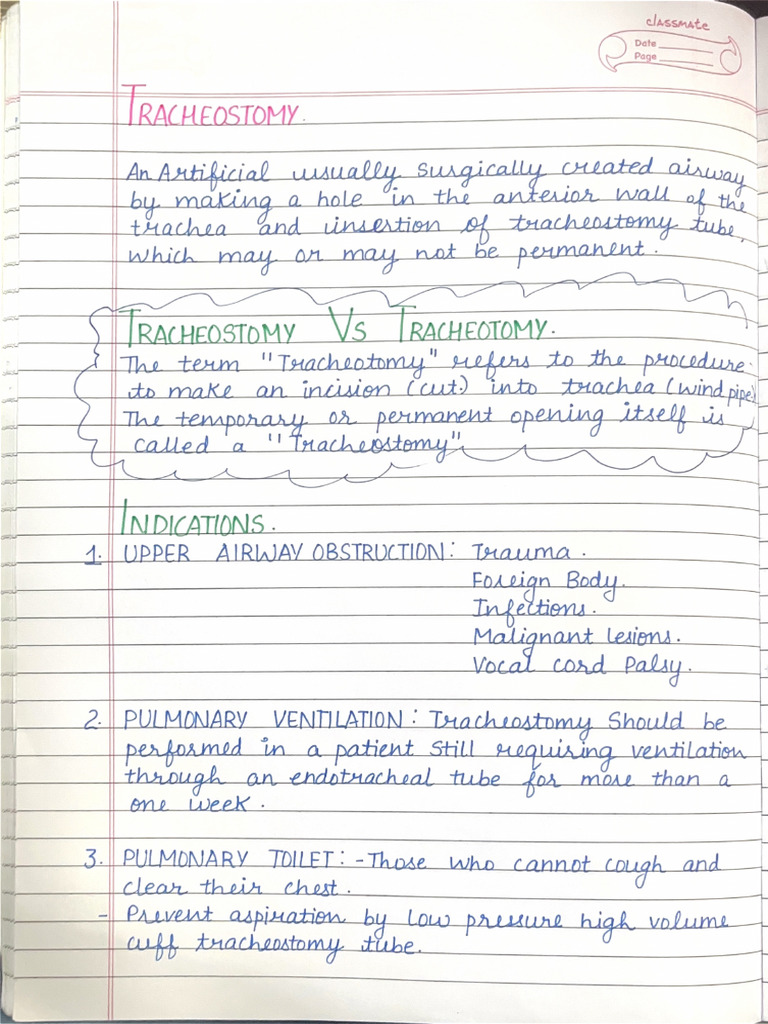 classmate
Date
Page
TRACHEOSTOMY.
An Artificial usually surgically created airway
by making a hole in the anterior wall of the
trachea and insertion of tracheostomy tube,
which may or may not be permanent.
TRACHEOSTOMY VS TRACHEOTOMY.
The term "Tracheotomy" refers to the procedure
to make an incision (cut) into trachea (wind pipe)
The temporary or permanent opening itself is
called a "Tracheostomy"
INDICATIONS.
1. UPPER AIRWAY OBSTRUCTION: Trauma.
Foreign Body.
Infections.
Malignant lesions.
Vocal cord Palsy.
2. PULMONARY VENTILATION: Tracheostomy Should be
performed in a patient still requiring ventilation
through an endotracheal tube for more than a
one week.
3. PULMONARY TOILET: - Those who cannot cough and
clear their chest.
- Prevent aspiration by low pressure high volume
cuff tracheostomy tube.